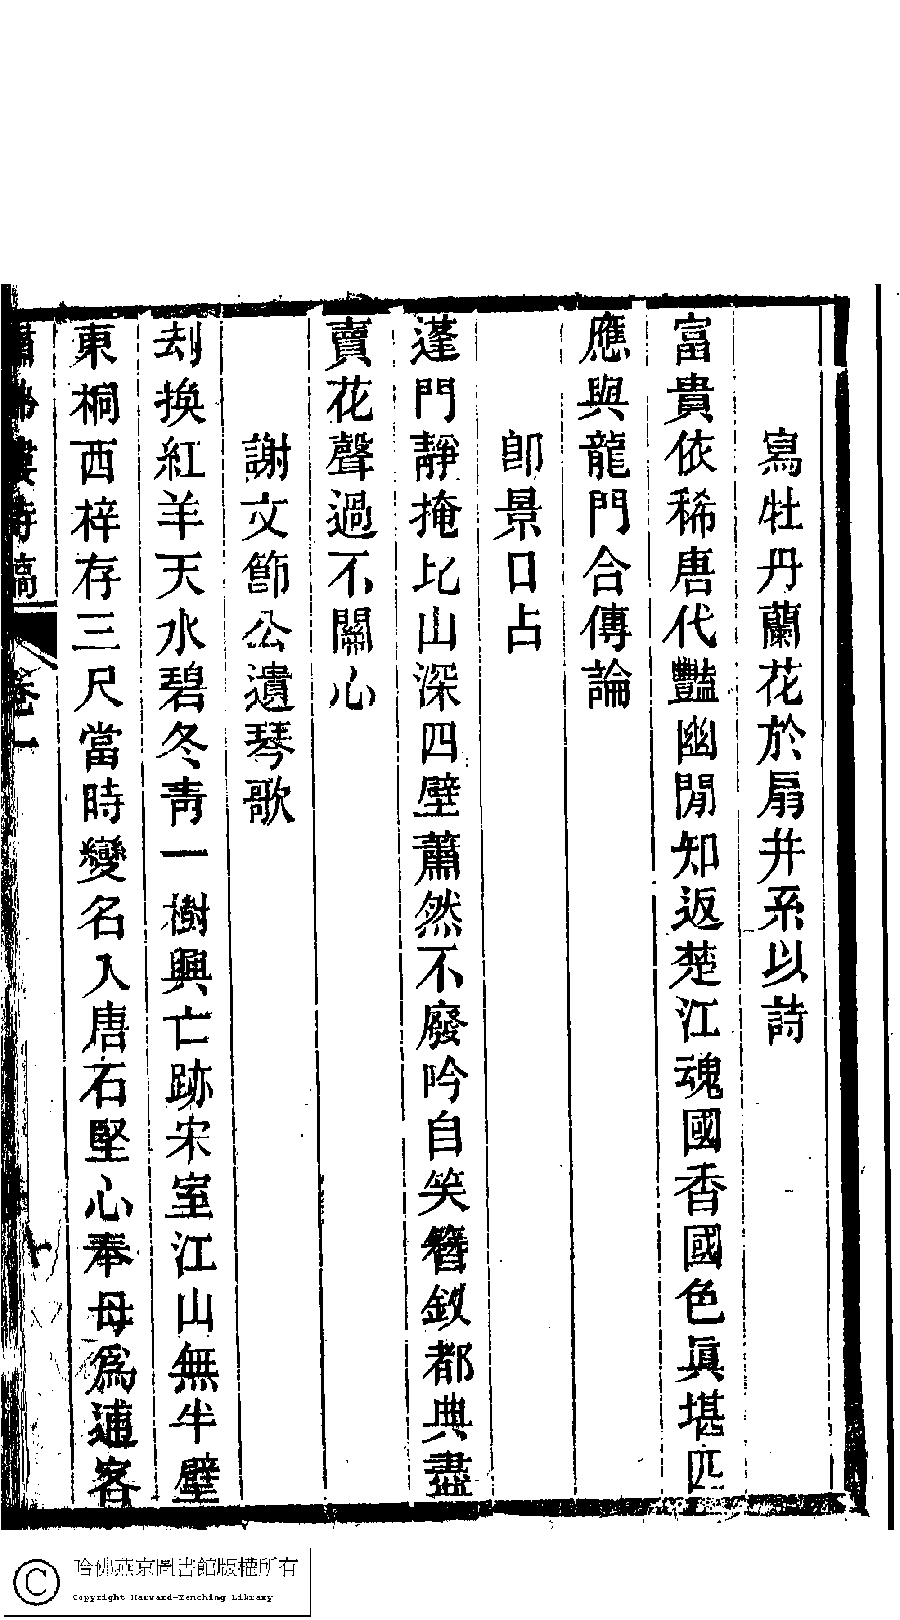 寫牡丹蘭花於扇并系以詩
富貴依稀唐代豔幽閒知返楚江魂國香國色眞堪匹
應與龍門合傳論
卽景口占
蓬門靜掩比山深四壁蕭然不廢吟自笑簪釵都典盡
賣花聲過不關心
謝文節公遺琴歌
刦換紅羊天水碧冬靑一樹興亡跡宋室江山無半壁
東桐西梓存三尺當時變名入唐石堅心奉母爲逋客
樓詩稿
卷一
十
哈佛燕京圖書館版權所有
Copyright Harvard-Yenching Library